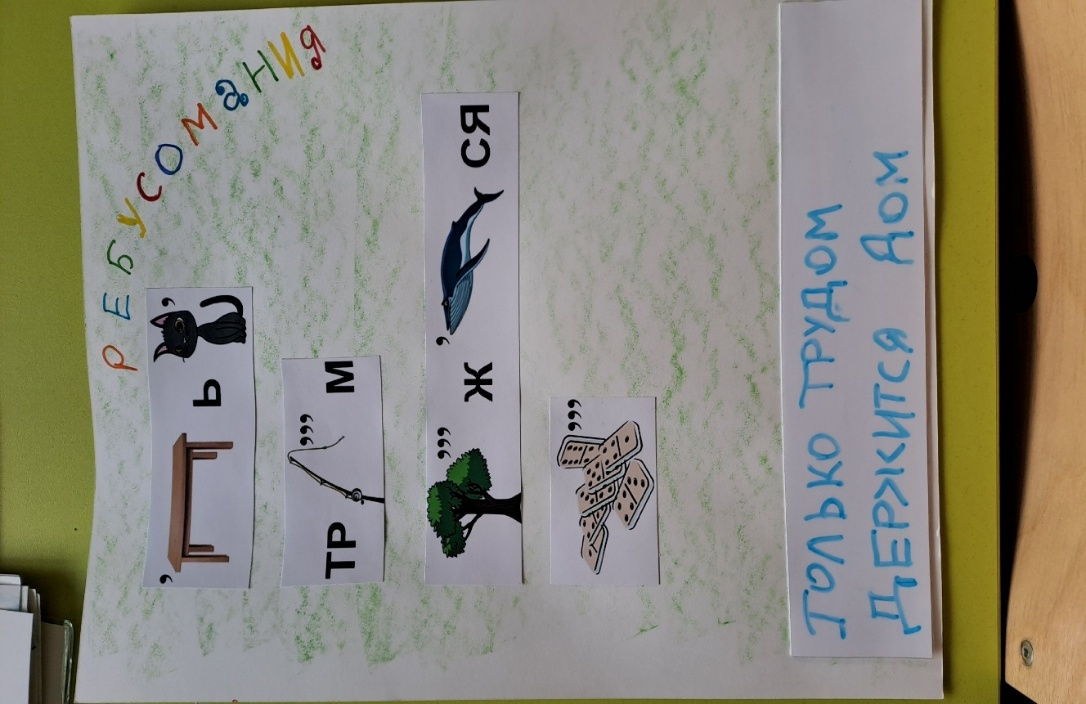 РЕБУСОМАНИЯ
' Ь '
ТР ''' М
''' Ж ' СЯ
'''
ТОЛЬКО ТРУДОМ
ДЕРЖИТСЯ ДОМ